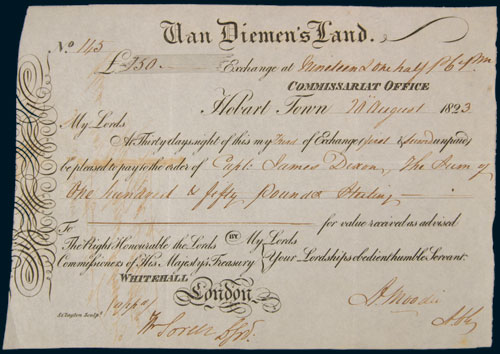 Van Diemen's Land.
No. 143
£150. Exchange at Nineteen & one half P Ct Pm
COMMISSARIAT OFFICE
Hobart Town 20th August 1823.
My Lords
At Thirty days sight of this my Third of Exchange (first & second unpaid)
be pleased to pay to the order of Capt. James Dixon, the Sum of
One hundred & fifty Pounds Sterling
for value received as advised
To
The Right Honourable the Lords BY My Lords
Commissioners of His Majesty's Treasury Your Lordships obedient humble Servant
WHITEHALL
London
A Moodie
Wm Sorell
S. Clayton Sculpt.